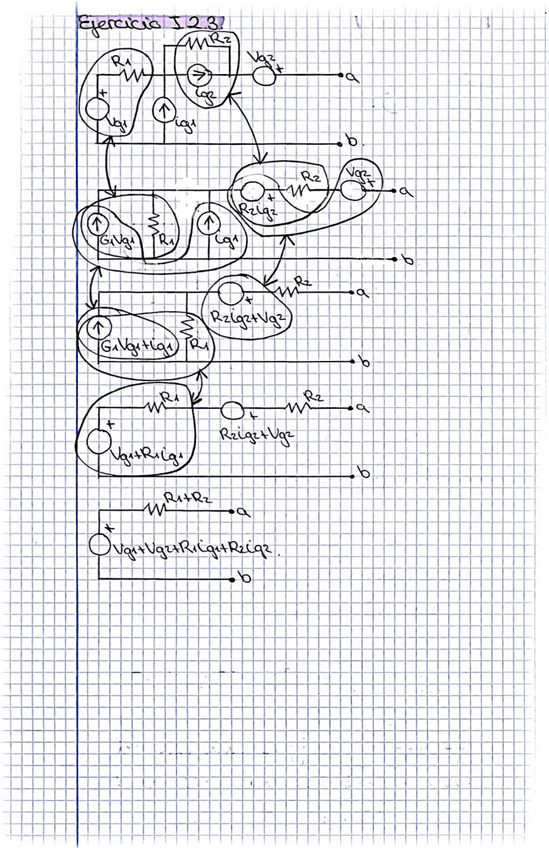 Ejercicio I.2.3.
R2
R1
Vg2
+
ig2
a
+
Vg1
ig1
b.
R2
Vg2
+
+
a
R2ig2
G1Vg1
R1
ig1
b
R2
+
a
R2ig2+Vg2
G1Vg1+ig1
R1
b
R1
R2
a
+
+
R2ig2+Vg2
Vg1+R1ig1
b
R1+R2
a
+
Vg1+Vg2+R1ig1+R2ig2.
b